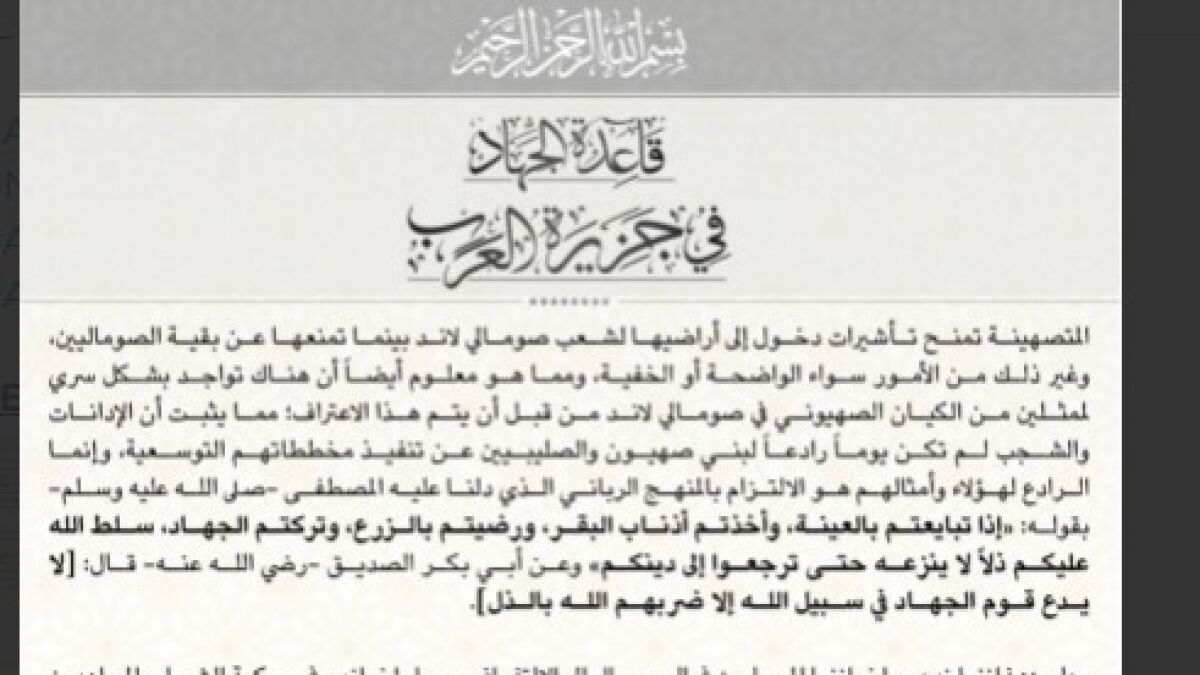 بسم الله الرحمن الرحيم
قاعدة الجهاد
في جزيرة العرب
المتصهينة تمنح تأشيرات دخول إلى أراضيها لشعب صومالي لاند بينما تمنعها عن بقية الصوماليين،
وغير ذلك من الأمور سواء الواضحة أو الخفية، ومما هو معلوم أيضاً أن هناك تواجد بشكل سري
لممثلين من الكيان الصهيوني في صومالي لاند من قبل أن يتم هذا الاعتراف؛ مما يثبت أن الإدانات
والشجب لم تكن يوماً رادعاً لبني صهيون والصليبيين عن تنفيذ مخططاتهم التوسعية، وإنما
الرادع لهؤلاء وأمثالهم هو الالتزام بالمنهج الرباني الذي دلنا عليه المصطفى -صلى الله عليه وسلم-
بقوله: «إذا تبايعتم بالعينة، وأخذتم أذناب البقر، ورضيتم بالزرع، وتركتم الجهاد، سلط الله
عليكم ذلاً لا ينزعه حتى ترجعوا إلى دينكم» وعن أبي بكر الصديق -رضي الله عنه- قال: [لا
يدع قوم الجهاد في سبيل الله إلا ضربهم الله بالذل].